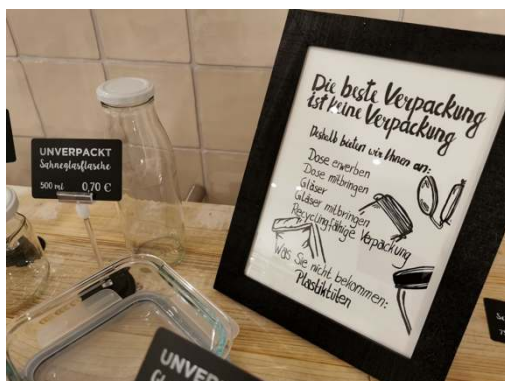 UNVERPACKT
Sahneglasflasche
500 ml 0,70 €
Die beste Verpackung
ist keine Verpackung
Deshalb bieten wir Ihnen an:
Dose erwerben
Dose mitbringen
Gläser
Gläser mitbringen
Recyclingfähige Verpackung
Was Sie nicht bekommen:
Plastiktüten